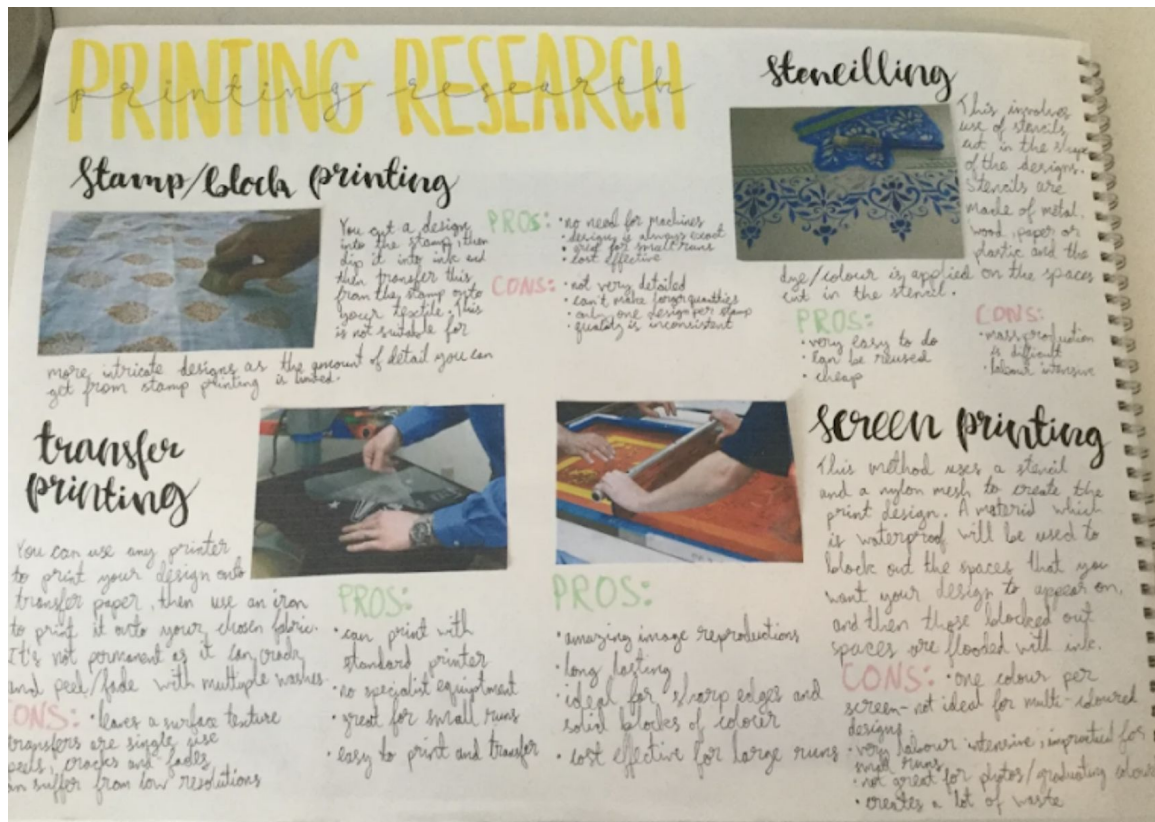 PRINTING RESEARCH
printing research
Stamp/block printing
You cut a design
into the stamp, then
dip it into ink and
then transfer this
from the stamp onto
your textile. This
is not suitable for
more intricate designs as the amount of detail you can
get from stamp printing is limited.
PROS:
• no need for machines
• design is always exact
• great for small runs
• cost effective
CONS:
• not very detailed
• can't make larger quantities
• only one design per stamp
• quality is inconsistent
stencilling
This involves
use of stencils
cut in the shape
of the designs.
Stencils are
made of metal,
wood, paper or
plastic and the
dye/colour is applied on the spaces
cut in the stencil.
PROS:
• very easy to do
• can be reused
• cheap
CONS:
• mass production
is difficult
• labour intensive
transfer
printing
You can use any printer
to print your design onto
transfer paper, then use an iron
to print it onto your chosen fabric.
It's not permanent as it can crack
and peel/fade with multiple washes.
CONS: • leaves a surface texture
transfers are single use
peels, cracks and fades
can suffer from low resolutions
PROS:
• can print with
standard printer
• no specialist equiptment
• great for small runs
• easy to print and transfer
screen printing
This method uses a stencil
and a nylon mesh to create the
print design. A material which
is waterproof will be used to
block out the spaces that you
want your design to appear on,
and then those blocked out
spaces are flooded with ink.
PROS:
• amazing image reproductions
• long lasting
• ideal for sharp edges and
solid blocks of colour
• cost effective for large runs
CONS: • one colour per
screen - not ideal for multi-coloured
designs
• very labour intensive, impractical for
small runs
• not great for photos/graduating colours
• creates a lot of waste